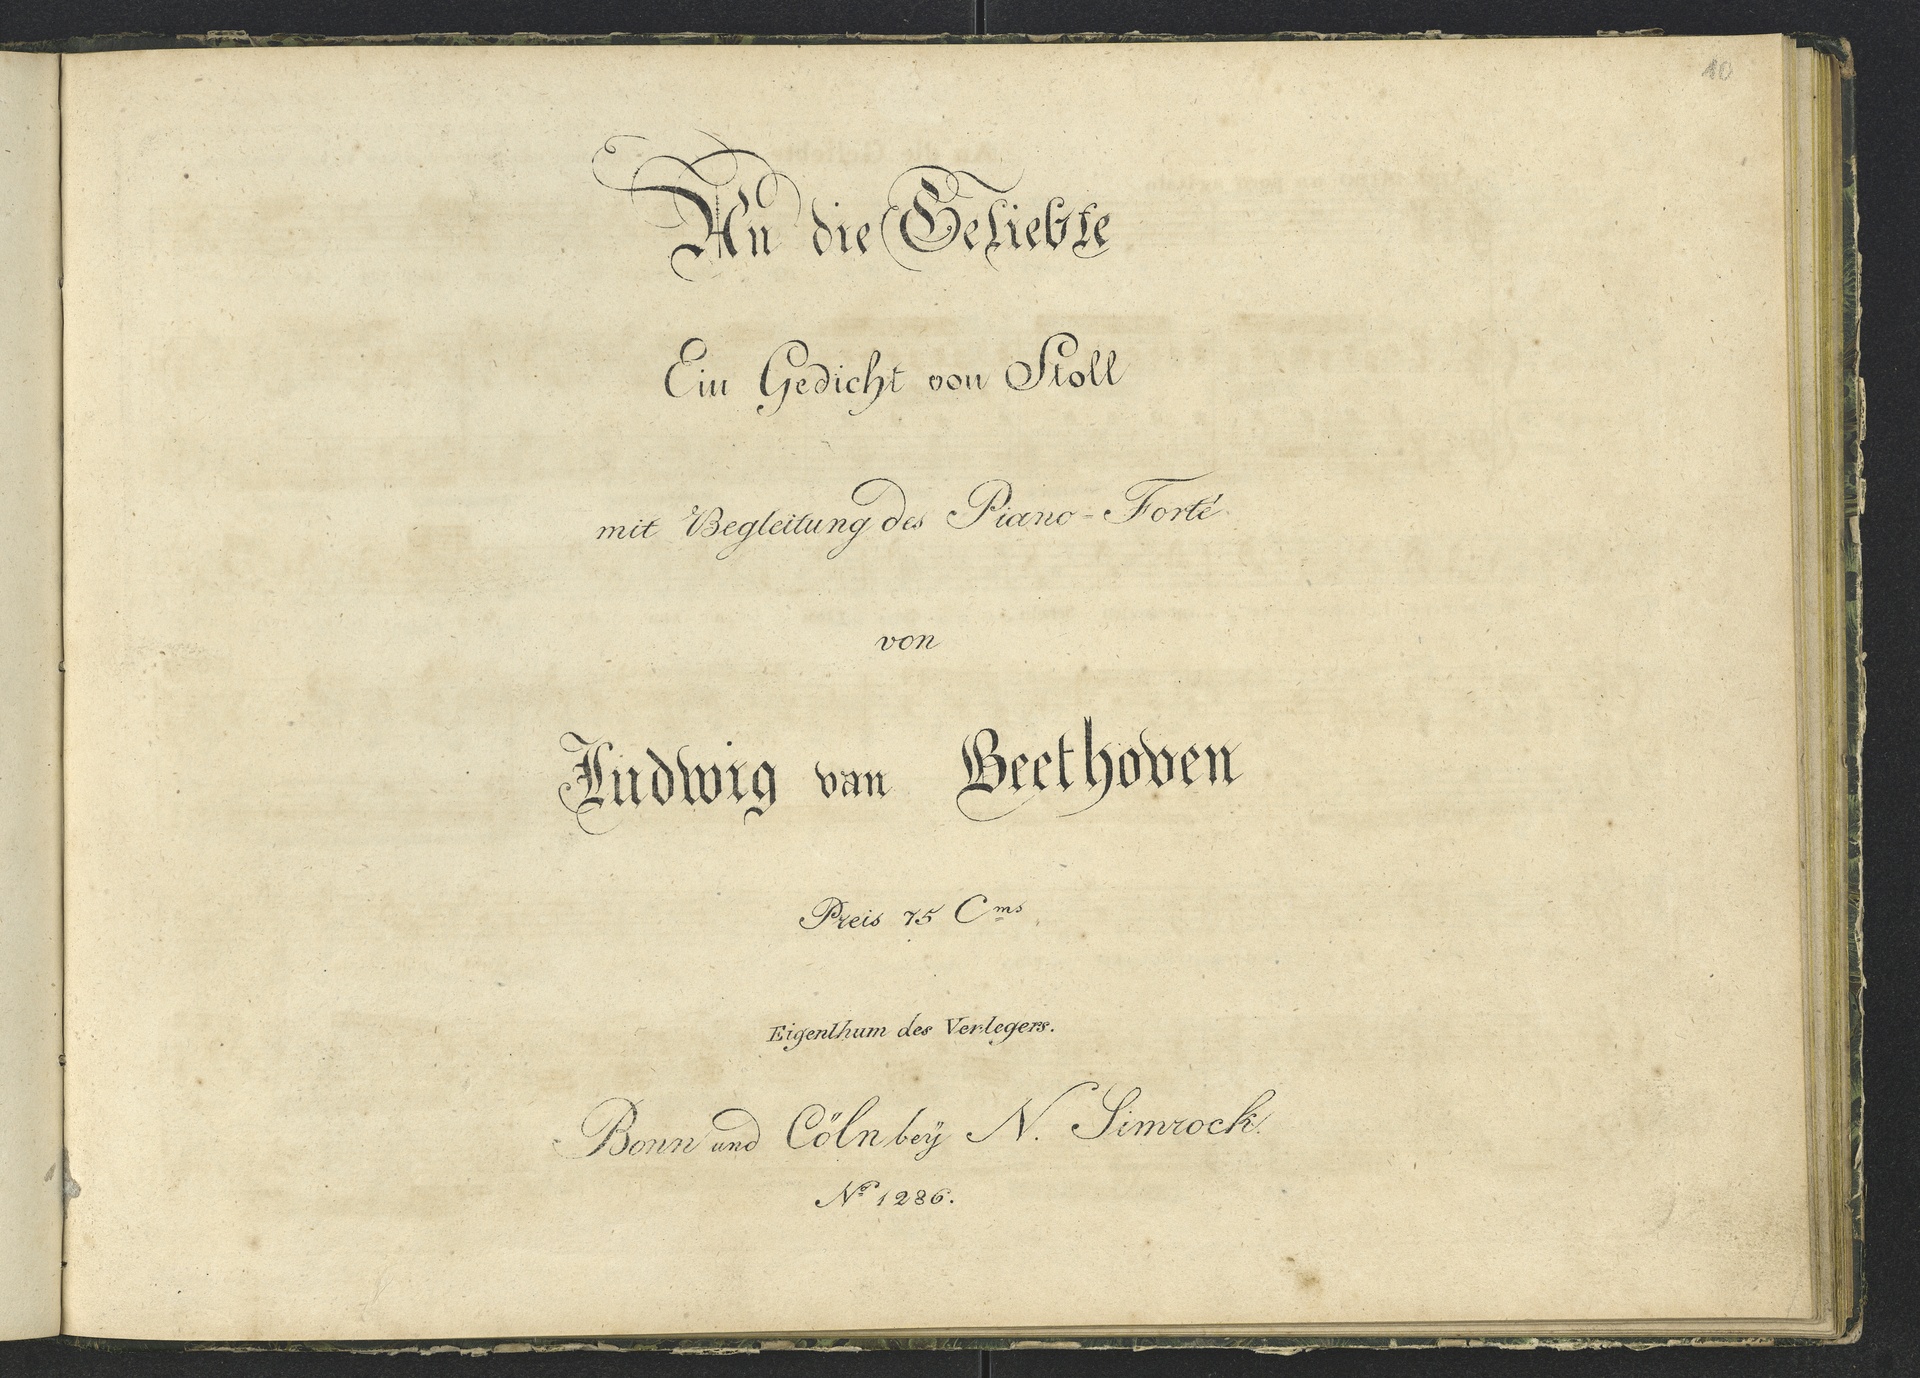 10
An die Geliebte
Ein Gedicht von Stoll
mit Begleitung des Piano-Forté
von
Ludwig van Beethoven
Preis 75 Cms
Eigenthum des Verlegers.
Bonn und Cöln beÿ N. Simrock.
No 1286.